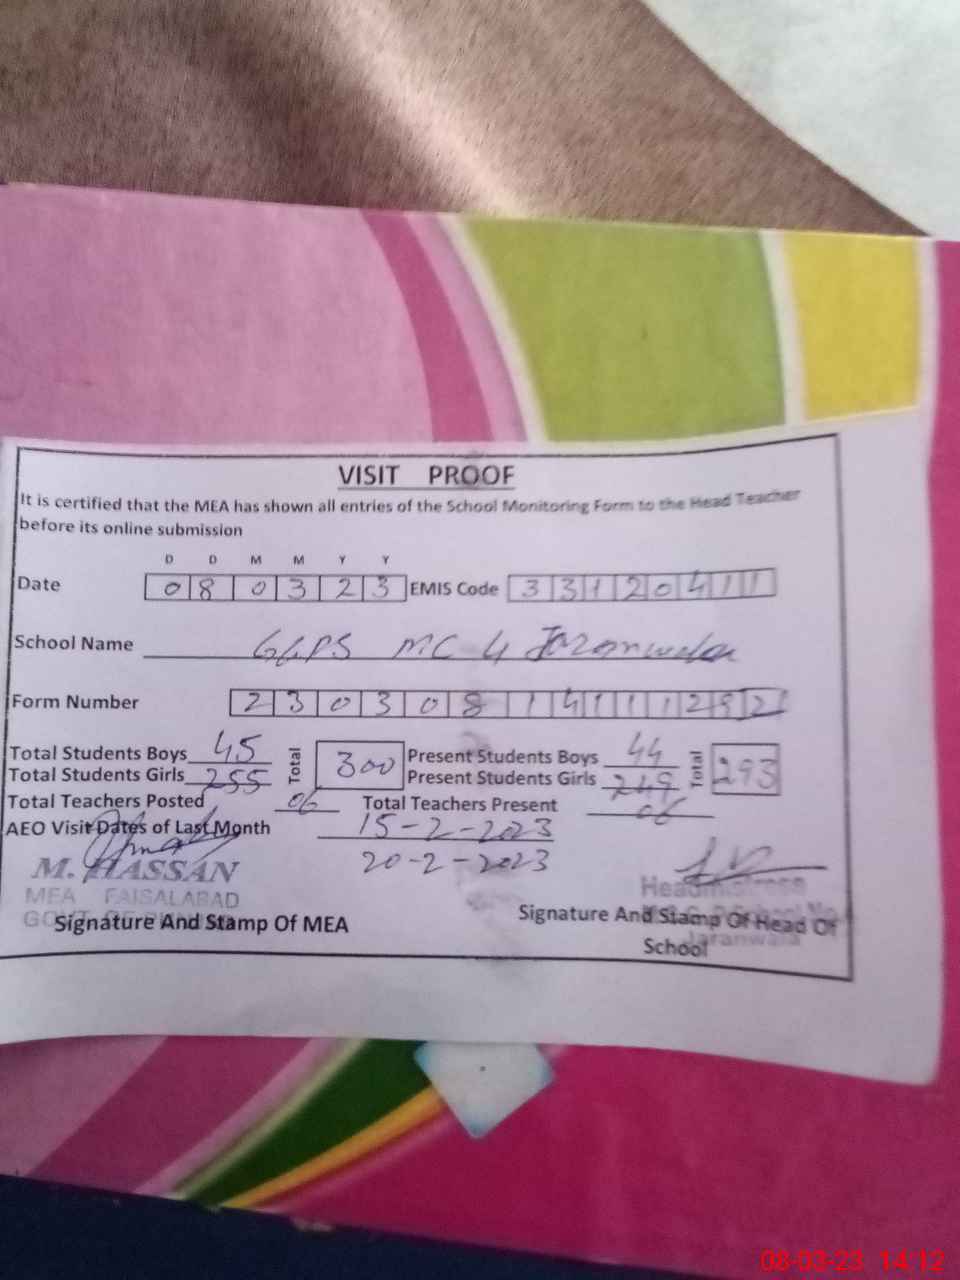 VISIT PROOF
It is certified that the MEA has shown all entries of the School Monitoring Form to the Head Teacher
before its online submission
D D M M Y Y
Date 0 8 0 3 2 3 EMIS Code 3 3 1 2 0 4 1 1
School Name GGPS MC 4 Jaranwala
Form Number 2 3 0 3 0 8 1 4 1 1 1 2 9 2
Total Students Boys 45 Total 300 Present Students Boys 44 Total 293
Total Students Girls 255 Present Students Girls 249
Total Teachers Posted 06 Total Teachers Present 06
AEO Visit Dates of Last Month 15-2-2023
20-2-2023
M. HASSAN
MEA FAISALABAD
Headmistress
Signature And Stamp Of MEA
Signature And Stamp Of Head Of
School
Jaranwala
08-03-23 14:12